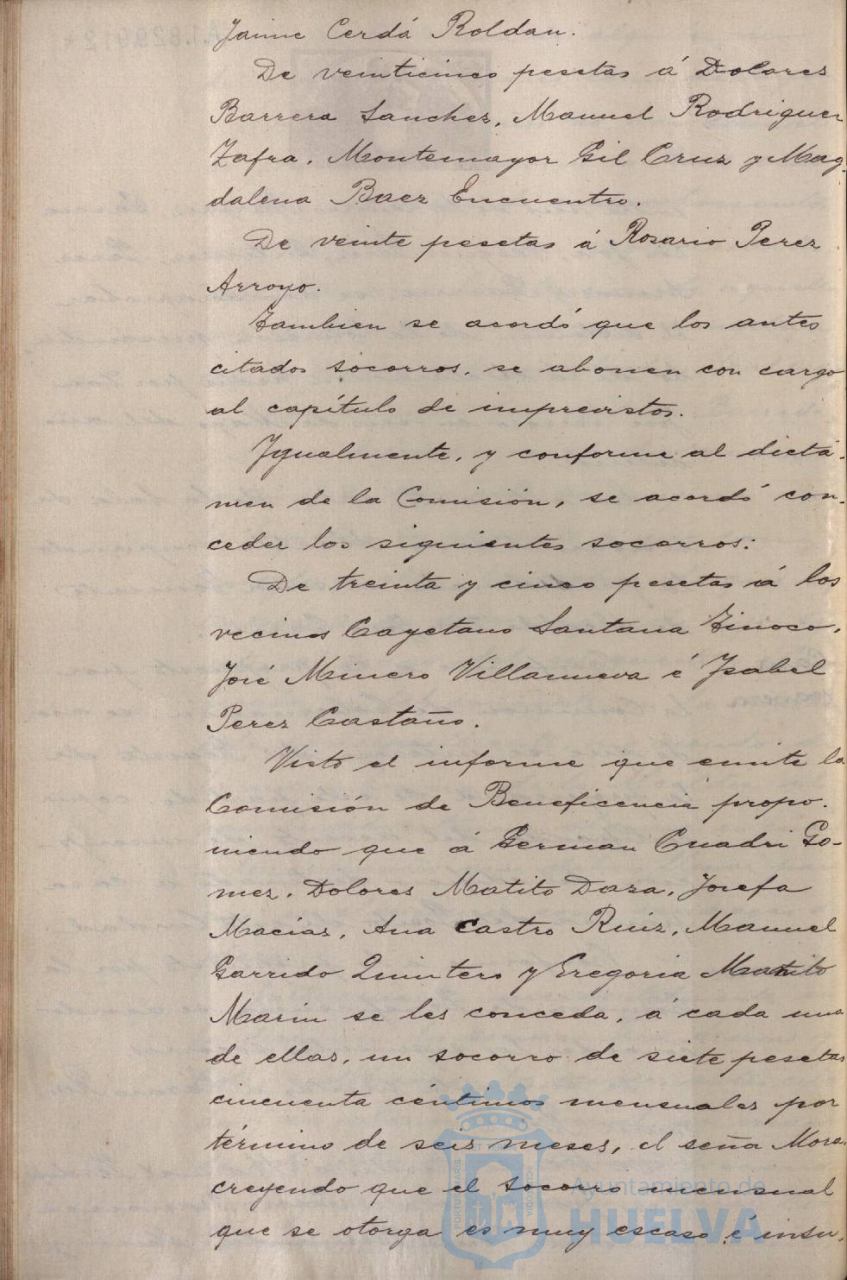 Jaime Cerdá Roldan.
De veinticinco pesetas á Dolores
Barrera Sanchez, Manuel Rodriguez
Zafra, Montemayor Gil Cruz y Mag-
dalena Baez Encuentro.
De veinte pesetas á Rosario Perez
Arroyo.
Tambien se acordó que los antes
citados socorros, se abonen con cargo
al capítulo de imprevistos.
Igualmente, y conforme al dictá-
men de la Comisión, se acordó con-
ceder los siguientes socorros:
De treinta y cinco pesetas á los
vecinos Cayetano Santana Tinoco,
José Minero Villanueva é Isabel
Perez Castaño.
Visto el informe que emite la
Comisión de Beneficencia propo-
niendo que á German Cuadri Go-
mez, Dolores Matito Daza, Josefa
Macias, Ana Castro Ruiz, Manuel
Garrido Quintero y Gregoria Matito
Marin se les conceda, á cada una
de ellas, un socorro de siete pesetas
cincuenta céntimos mensuales por
término de seis meses, el seña Mora
creyendo que el socorro mensual
que se otorga es muy escaso é insu-
Ayuntamiento de
HUELVA